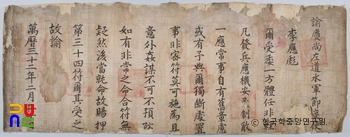 諭慶尚左道水軍節度使
李應彪
爾受委一方體任非輕
凡發兵應機安民制敵
一應常事自有舊章慮
或有予與爾獨斷處置
事非密符莫可施爲且
意外姦謀不可不預防
如有非常之命合符無
疑然後當就命故賜押
第三十四符爾其受之
故諭
萬曆三十二年十二月
©한국학중앙연구원